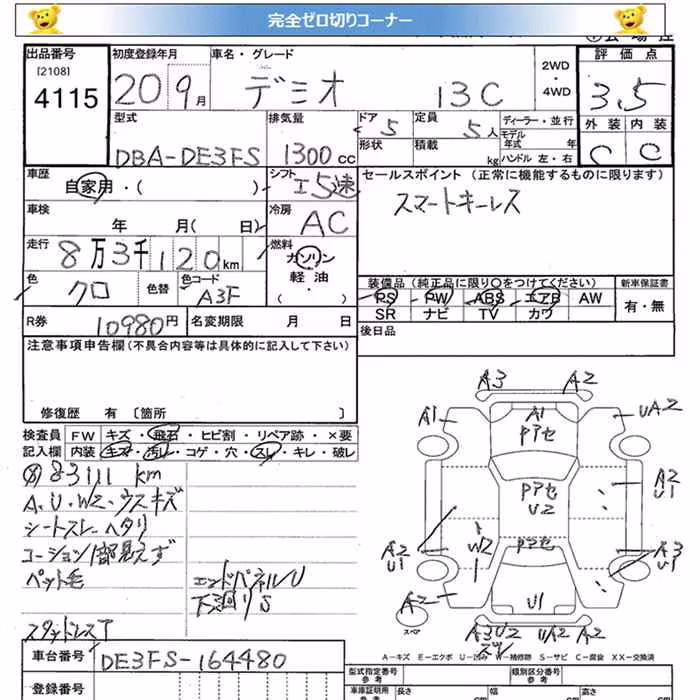 完全ゼロ切りコーナー
出品番号 初度登録年月 車名・グレード 2WD・4WD 評価点
[2108]
4115 20 9月 デミオ 13C 3.5
型式 排気量 ドア 5 定員 5人 ディーラー・並行 外装 内装
DBA-DE3FS 1300cc 形状 積載 kg モデル年式 年 ハンドル 左・右 C C
車歴 自家用・( ) シフト I 5速 セールスポイント(正常に機能するものに限ります)
車検 年 月( 日) 冷房 AC スマートキーレス
走行 8万3千120km 燃料 ガソリン 軽油・( )
色 クロ 色替 色コード A3F
装備品(純正品に限り○をつけてください) 新車保証書
PS PW ABS エアB AW 有・無
SR ナビ TV カワ
R券 10980円 名変期限 月 日 後日品
注意事項申告欄(不具合内容等は具体的に記入して下さい)
修復歴 有〔箇所 〕
検査員 FW キズ・飛石・ヒビ割・リペア跡・×要
記入欄 内装 キズ・汚レ・コゲ・穴・スレ・キレ・破レ
83111 km
A、U・W2・ウスキズ
シートスレ ヘタリ
コーション1部見えず
ペット毛 エンドパネルU
下廻りS
スタッドレスT
A3 A2
A1 A1 UA2
Pアセ
A2 U1
Pアセ
U2
A2 U1 W2 Pアセ A3 U1
A2 U1
スペア A3U2 UA2 A2
ズレ
A-キズ E-エクボ U-凹み W-補修跡 S-サビ C-腐食 XX-交換済
車台番号 DE3FS-164480
登録番号
型式指定番号 参考 類別区分番号 参考
車庫証明用 参考 長さ cm 幅 cm 高さ cm